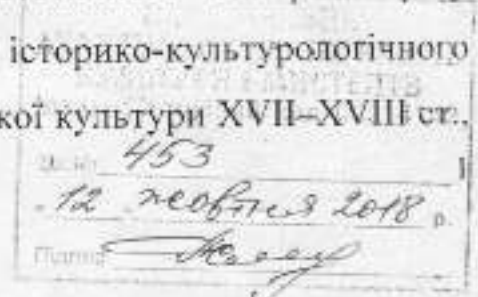 історико-культурологічного
кої культури XVII–XVIII ст.,
453
12 жовтня 2018 р.
Підпис